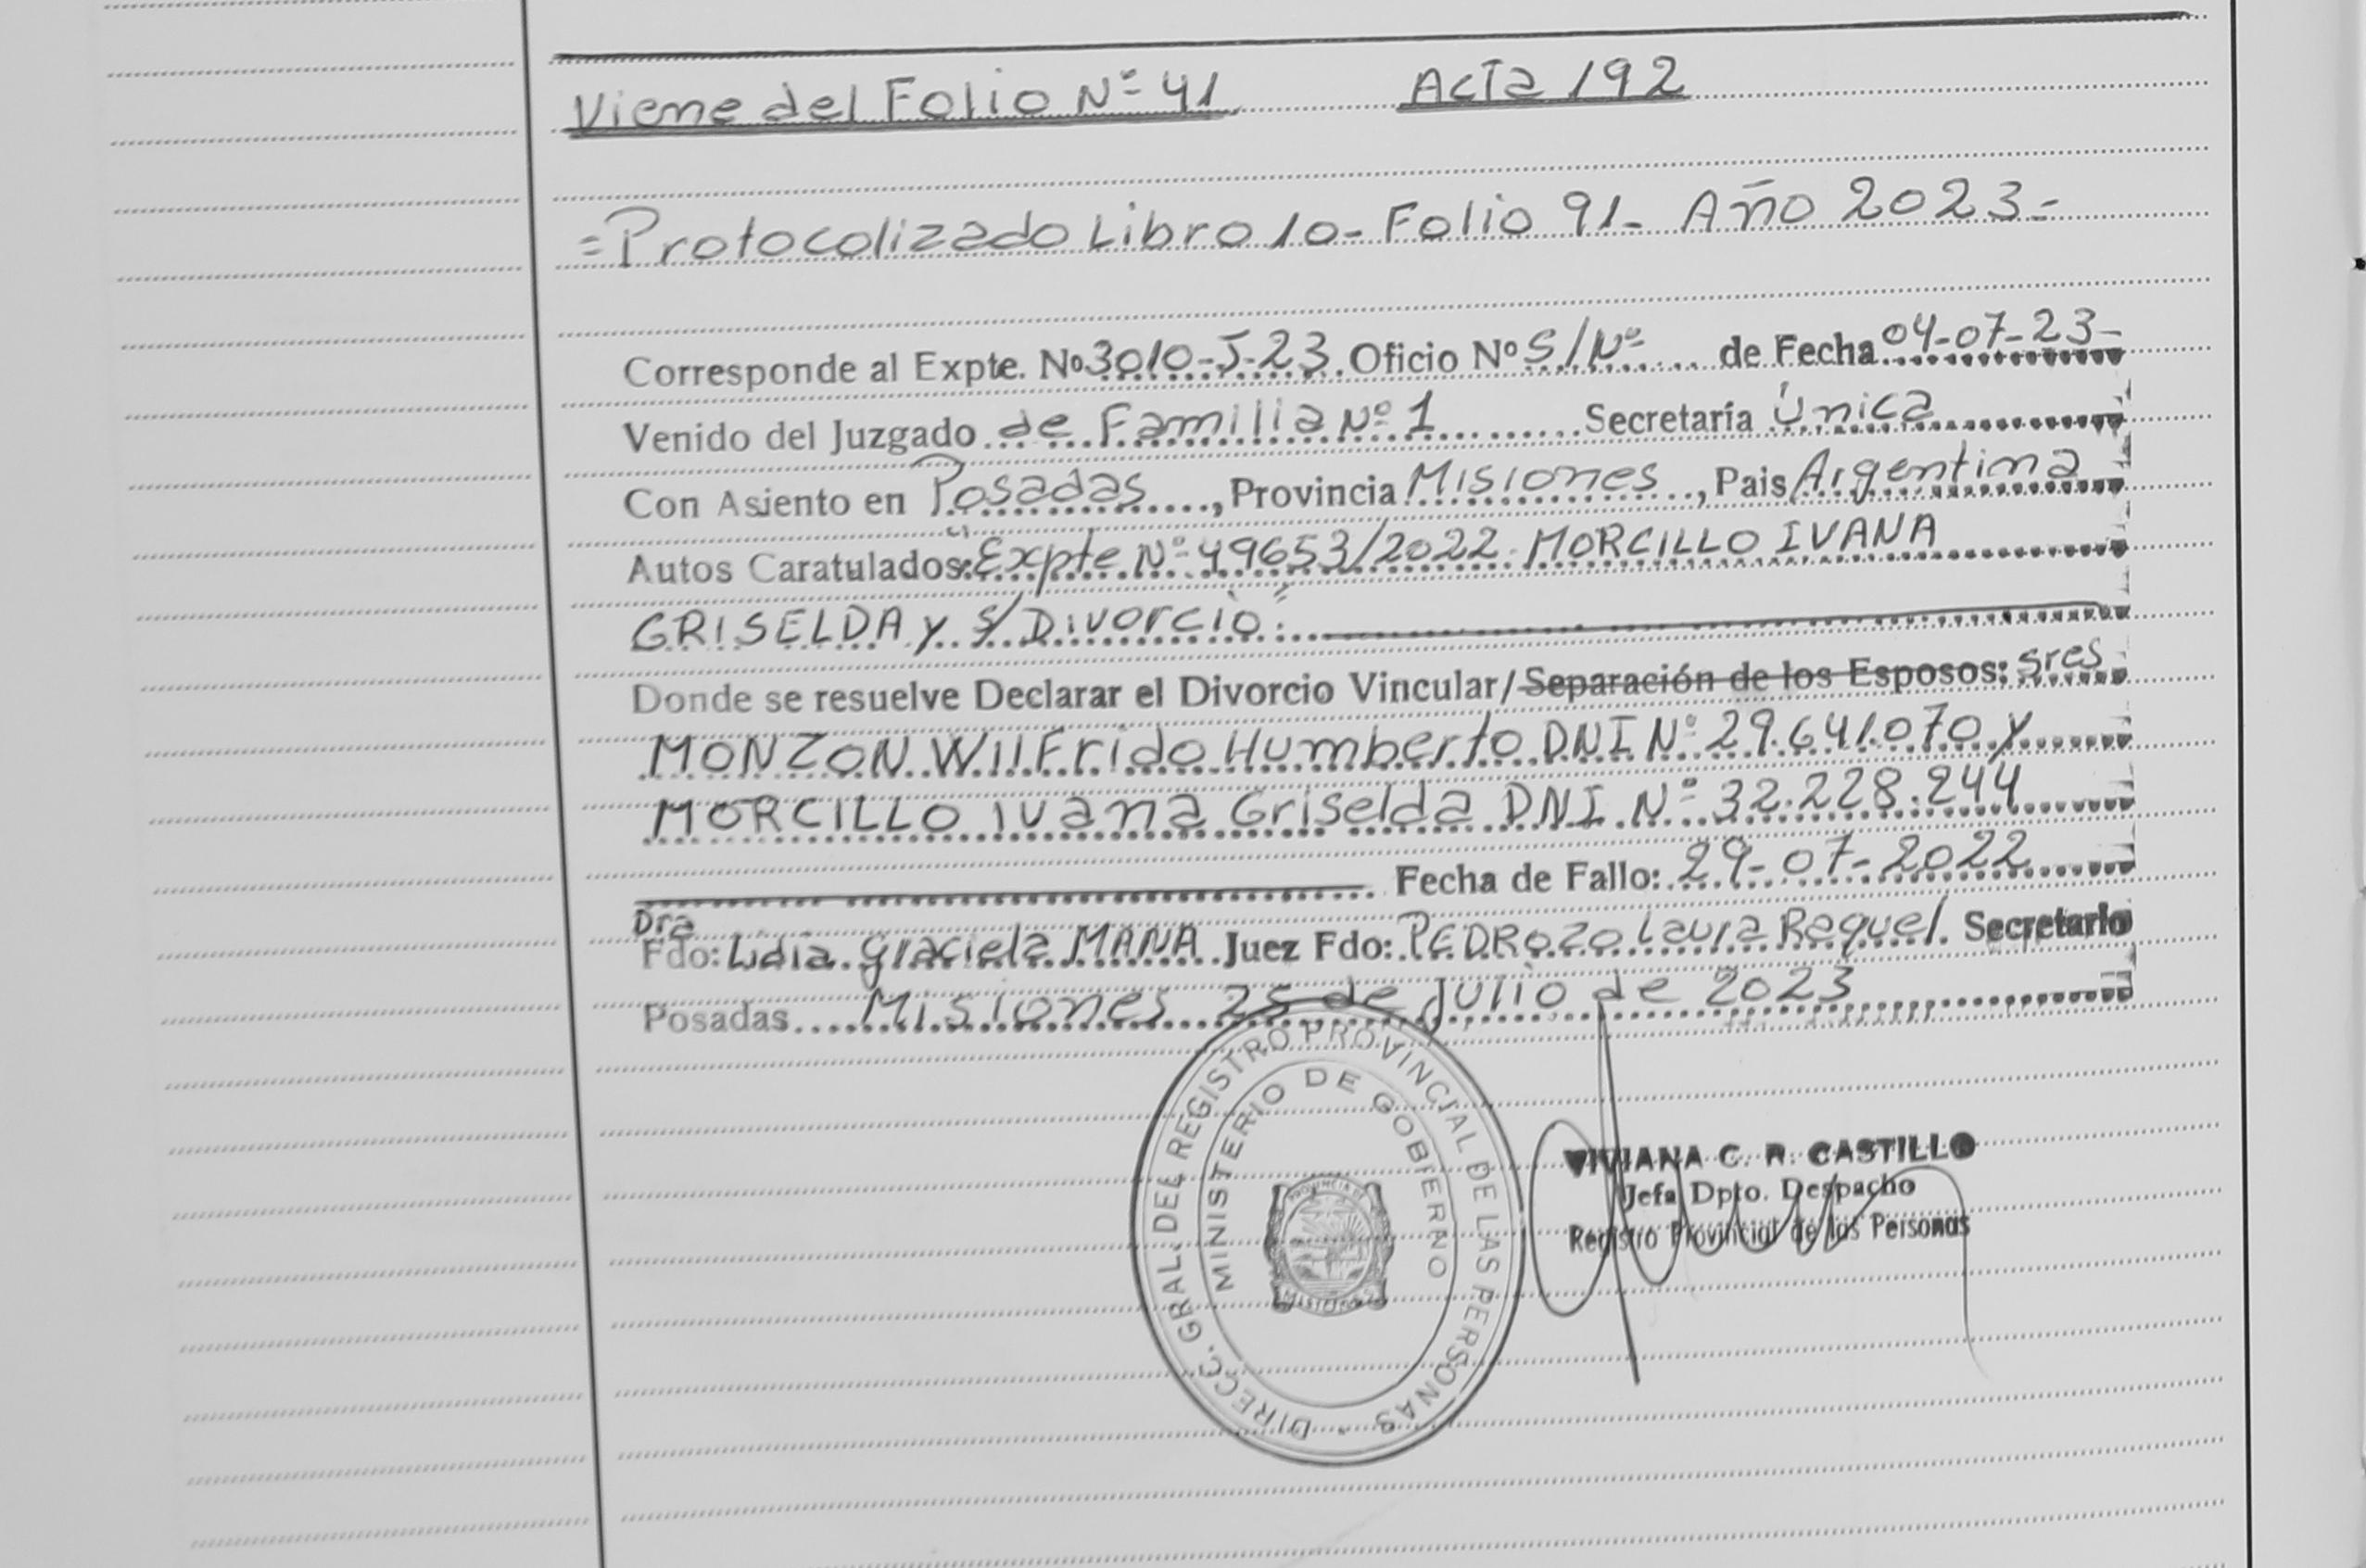 Viene del Folio Nº 41 Acta 192
=Protocolizado Libro 10- Folio 91- Año 2023-
Corresponde al Expte. Nº 3010-J-23. Oficio Nº S/Nº de Fecha 04-07-23-
Venido del Juzgado de Familia Nº 1 Secretaría Única
Con Asiento en Posadas, Provincia Misiones, Pais Argentina
Autos Caratulados: "Expte Nº 49653/2022. MORCILLO IVANA
GRISELDA y s/ Divorcio".
Donde se resuelve Declarar el Divorcio Vincular/Separación de los Esposos: sres
MONZON Wilfrido Humberto DNI Nº 29.641.070 y
MORCILLO Ivana Griselda DNI Nº 32.228.244
Fecha de Fallo: 29-07-2022
Dra
Fdo: Lidia Graciela MANA Juez Fdo: PEDROZO Laura Raquel. Secretario
Posadas Misiones 25 de Julio de 2023
DIRECC. GRAL. DEL REGISTRO PROVINCIAL DE LAS PERSONAS
MINISTERIO DE GOBIERNO
PROVINCIA DE
MISIONES
VIVIANA C. R. CASTILLO
Jefa Dpto. Despacho
Registro Provincial de las Personas